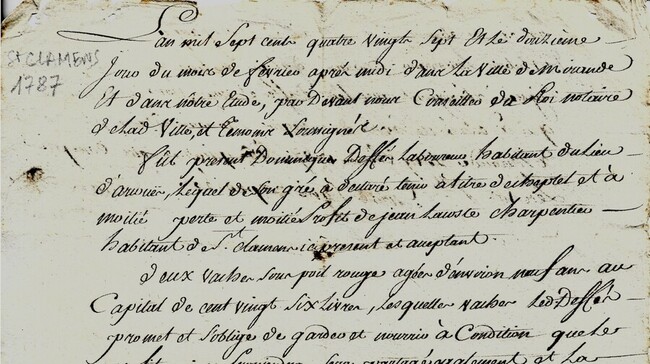 St CLAMENS
1787
L'an mil Sept cents quatre vingts Sept Et Le douzieme
Jour du mois de fevrier après midi dans La Ville de mirande
Et dans nôtre Etude, par Devant nous Conseiller du Roi notaire
de lad Ville, et temoins Soussignés
Fut présent Dominique Deffés Laboureur habitant du lieu
Lequel de Son gré a declaré tenir a titre de cheptel et à
moitié perte et moitié Profit de jean charpentier
habitant de St clamens ici present et aceptant.
deux vaches Sous poil rouge agées d'environ neuf ans au
Capital de cent vingt Six Livres, Lesquelles vaches Led Deffés
promet et S'oblige de garder et nourrir à Condition que le